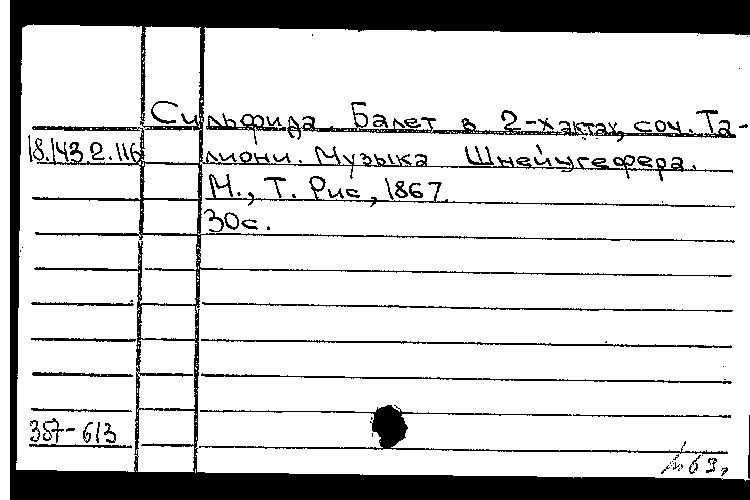 Сильфида. Балет в 2-х актах, соч. Та-
18.143.2.116 лиони. Музыка Шнейцгефера.
М., Т. Рис, 1867.
30с.
357-613